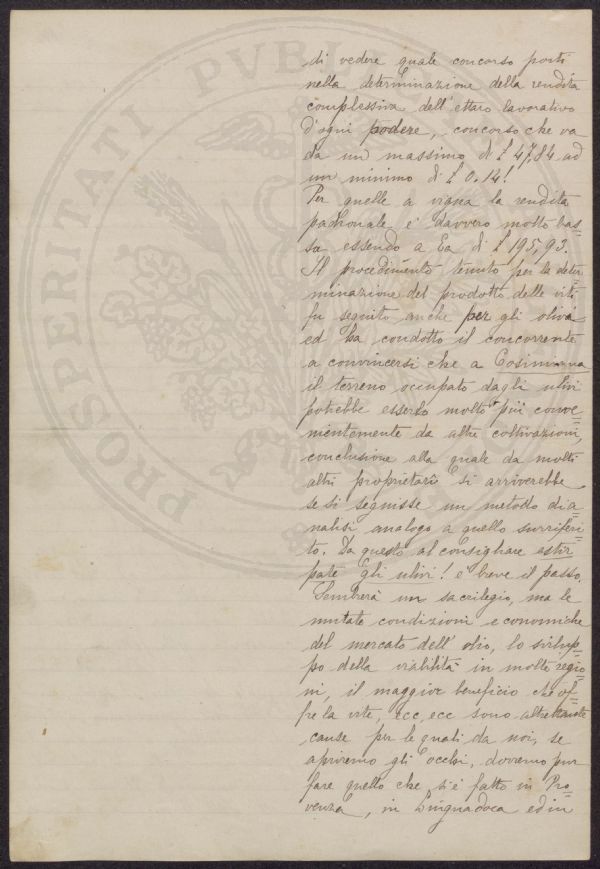 PROSPERITATI PVBLI
di vedere quale concorso porti
nella determinazione della rendita
complessiva dell'ettaro lavorativo
d'ogni podere, concorso che va
da un massimo di £ 47,84 ad
un minimo di £ 0,14!
Per quelle a vigna la rendita
padronale è davvero molto bas=
sa essendo a Ea di £ 195,93.
Il procedimento tenuto per la deter=
minazione del prodotto delle viti
fu seguito anche per gli olivi
ed ha condotto il concorrente
a convincersi che a Cosimiana
il terreno occupato dagli ulivi
potrebbe esserlo molto più conve=
nientemente da altre coltivazioni,
conclusione alla quale da molti
altri proprietari si arriverebbe
se si seguisse un metodo di a=
nalisi analogo a quello surriferi=
to. Da questo al consigliare estir=
pate gli ulivi! è breve il passo.
Sembrerà un sacrilegio, ma le
mutate condizioni economiche
del mercato dell'olio, lo svilup=
po della viabilità in molte regio=
ni, il maggior beneficio che of=
fre la vite, ecc, ecc sono altrettante
cause per le quali da noi, se
apriremo gli occhi, dovremo pur
fare quello che si è fatto in Pro=
venza, in Linguadoca ed in